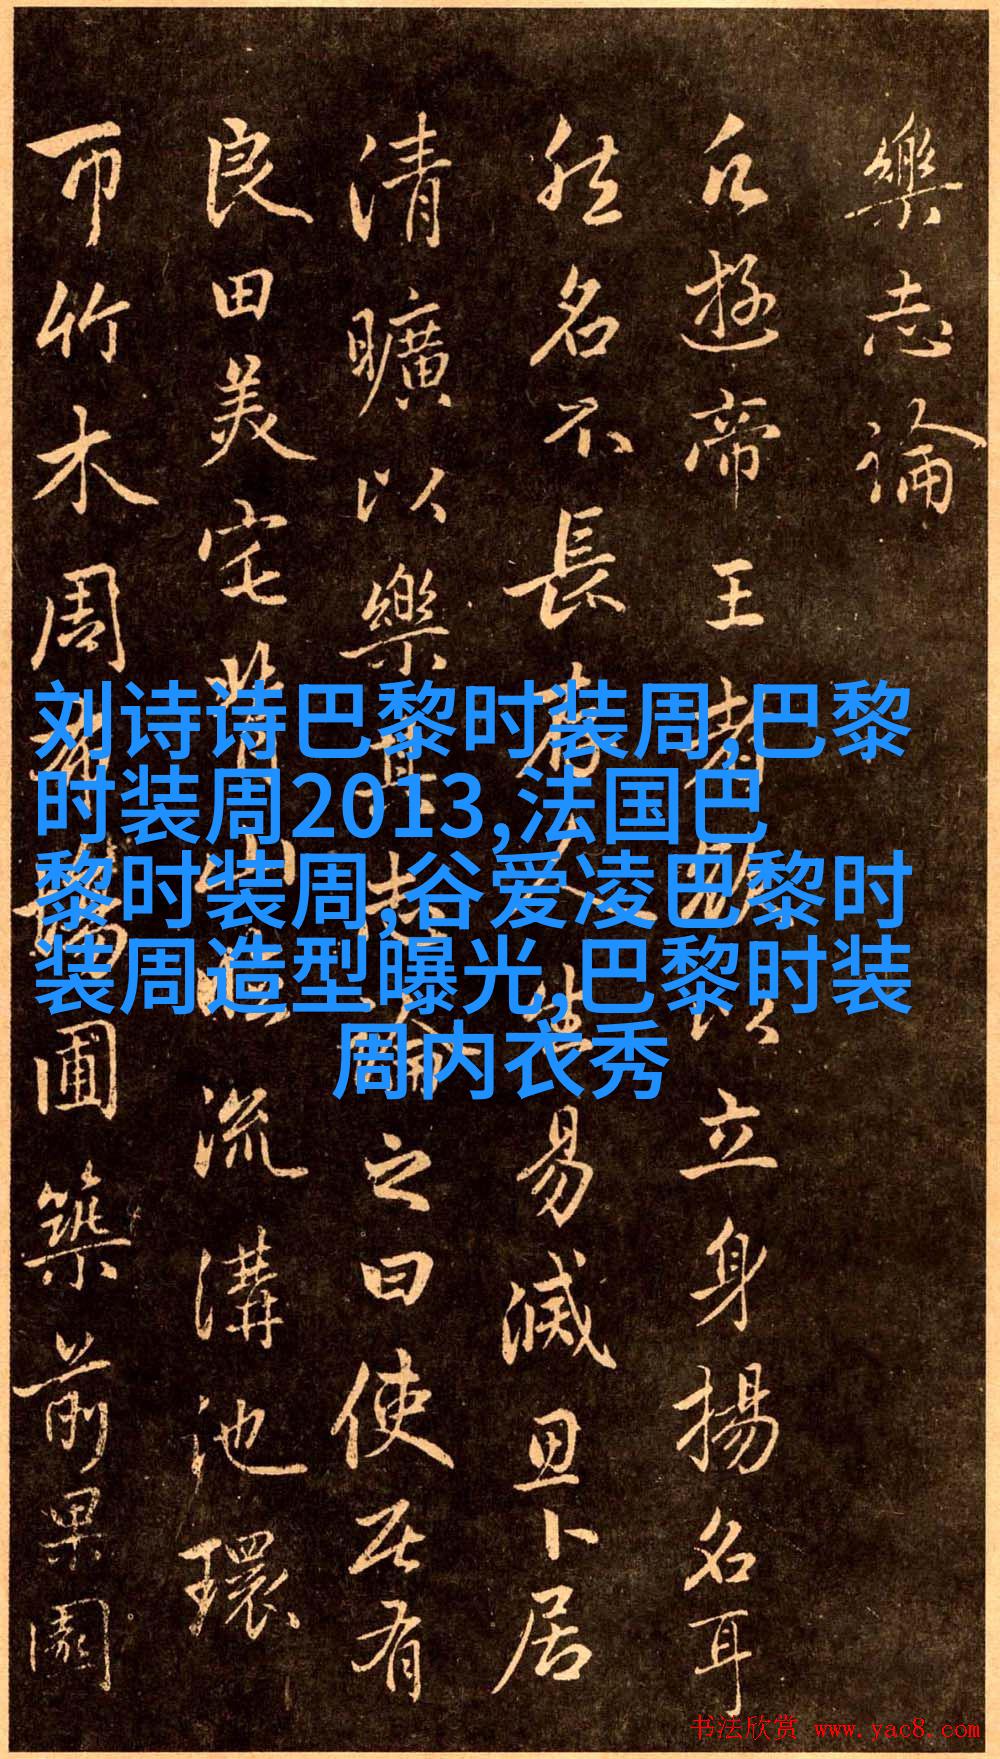 樂志論
凡遊帝王者以立身揚名耳
然名不長存人生易滅思卜居
清曠以樂其志論之曰使居有
良田美宅背山臨流溝池環
帀竹木周布場圃築前果園
刘诗诗巴黎时装周,巴黎
时装周2013,法国巴
黎时装周,谷爱凌巴黎时
装周造型曝光,巴黎时装
周内衣秀
书法欣赏 www.yac8.com